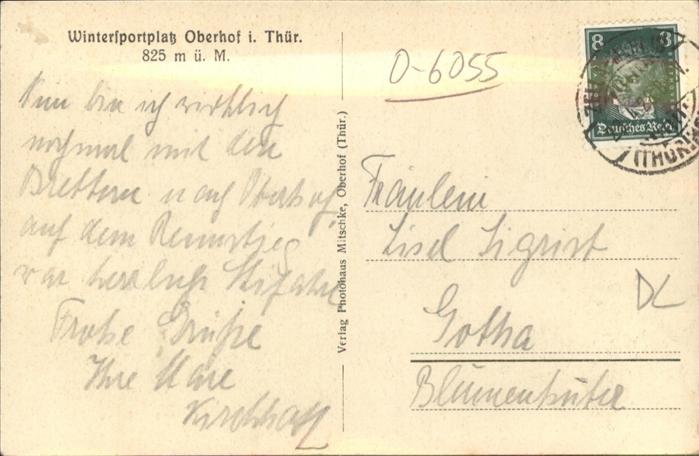 Winterſportplatz Oberhof i. Thür.
825 m ü. M.
Nun bin ich wirklich
nochmal mit den
Brettern nach Oberhof,
auf dem Rennstieg
war herrlich Skifahre
Frohe Grüße
Ihre
Kirchhoff
Verlag Photohaus Mitschke, Oberhof (Thür.)
0-6055
8 8
Deutsches Reich
(THÜR
Fräulein
Lisel Sigrist
DL
Gotha
Blumen